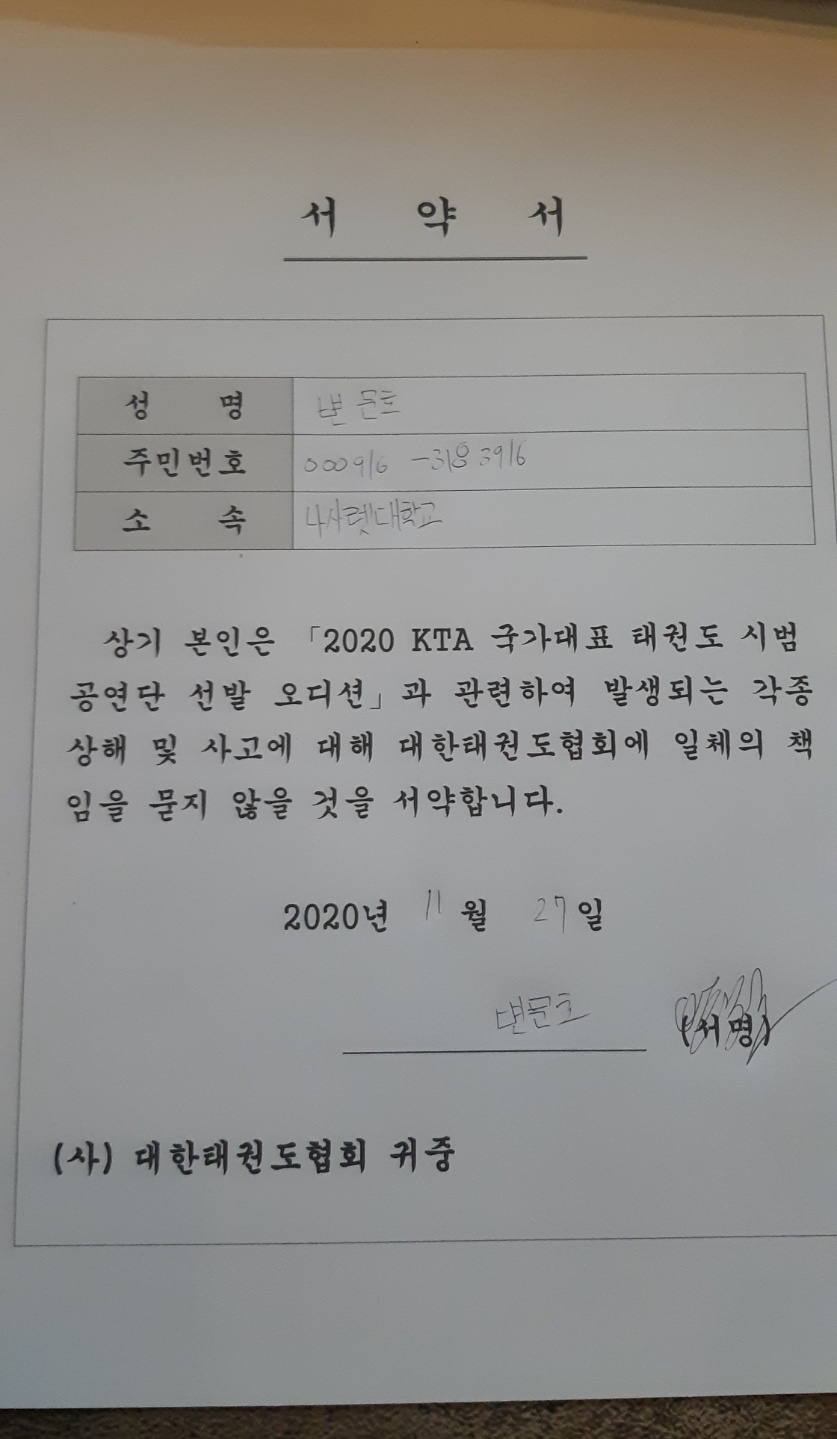 서 약 서
성 명 변 문호
주민번호 000916 -3183916
소 속 나사렛대학교
상기 본인은 「2020 KTA 국가대표 태권도 시범
공연단 선발 오디션」과 관련하여 발생되는 각종
상해 및 사고에 대해 대한태권도협회에 일체의 책
임을 묻지 않을 것을 서약합니다.
2020년 11월 27일
변문호 (서명)
(사) 대한태권도협회 귀중